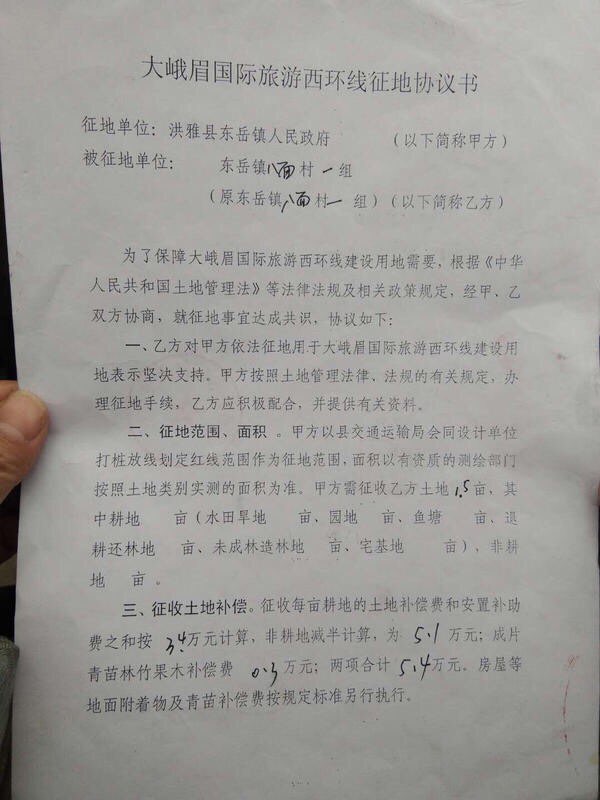 大峨眉国际旅游西环线征地协议书
征地单位：洪雅县东岳镇人民政府 （以下简称甲方）
被征地单位： 东岳镇八面村一组
（原东岳镇八面村一组）（以下简称乙方）
为了保障大峨眉国际旅游西环线建设用地需要，根据《中华
人民共和国土地管理法》等法律法规及相关政策规定，经甲、乙
双方协商，就征地事宜达成共识，协议如下：
一、乙方对甲方依法征地用于大峨眉国际旅游西环线建设用
地表示坚决支持。甲方按照土地管理法律、法规的有关规定，办
理征地手续，乙方应积极配合，并提供有关资料。
二、征地范围、面积 。甲方以县交通运输局会同设计单位
打桩放线划定红线范围作为征地范围，面积以有资质的测绘部门
按照土地类别实测的面积为准。甲方需征收乙方土地1.5亩，其
中耕地 亩（水田旱地 亩、园地 亩、鱼塘 亩、退
耕还林地 亩、未成林造林地 亩、宅基地 亩），非耕
地 亩 。
三、征收土地补偿。征收每亩耕地的土地补偿费和安置补助
费之和按 3.4万元计算，非耕地减半计算，为 5.1 万元；成片
青苗林竹果木补偿费 0.3 万元；两项合计 5.4万元。房屋等
地面附着物及青苗补偿费按规定标准另行执行。